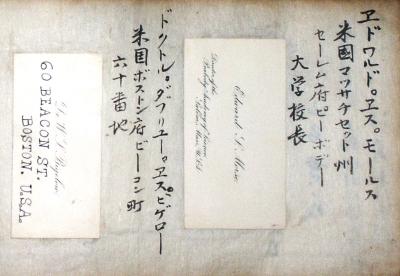 ヱドワルド。ヱス。モールス
米國マツサチセット州
セーレム府ピーボデー
大学校長
Edward S. Morse,
Director of the
Peabody Academy of Science
Salem, Mass. U.S.A.
ドクトル。ダブリユー。ヱスビゲロー
米国ボストン府ビーコン町
六十番地
Dr. W. S. Bigelow
60 BEACON ST.
BOSTON. U.S.A.